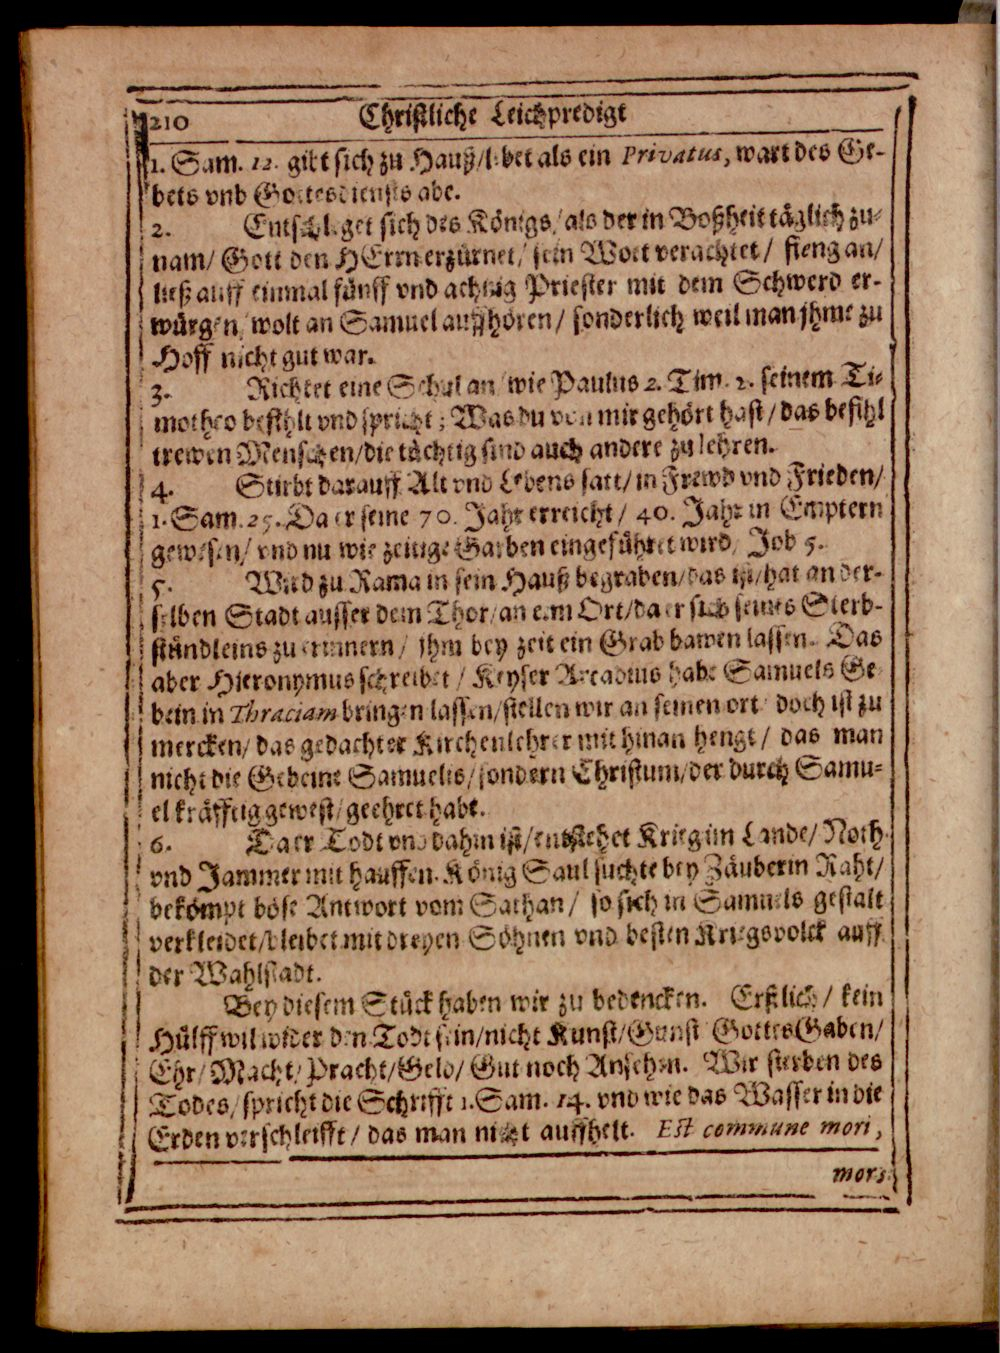 210 Christliche Leichpredigt
1. Sam. 12. gibt sich zu Hauß/lebet als ein Privatus, wart des Ge-
bets vnd Gottesdiensts abe.
2. Entschleget sich des Königs/als der in Boßheit täglich zu-
nam/ Gott den HErrn erzürnet/ sein Wort verachtet/ fieng an/
ließ auff einmal fünff vnd achtzig Priester mit dem Schwerd er-
würgen/ wolt an Samuel auffhören/ sonderlich weil man jhme zu
Hoff nicht gut war.
3. Richtet eine Schul an/wie Paulus 2. Tim. 2. seinem Ti-
motheo befihlt vnd spricht; Was du von mir gehört hast/das befihl
trewen Menschen/die tüchtig sind auch andere zu lehren.
4. Stirbt darauff Alt vnd Lebens satt/in Frewd vnd Frieden/
1. Sam. 25. Da er seine 70. Jahr erreicht/ 40. Jahr in Emptern
gewesen/ vnd nu wie zeitige Garben eingeführet wird/ Job 5.
5. Wird zu Rama in sein Hauß begraben/das ist/hat an der-
selben Stadt ausser dem Thor/an eim Ort/da er sich seines Sterb-
stündleins zu erinnern/ jhm bey zeit ein Grab bawen lassen. Das
aber Hieronymus schreibet/ Keyser Arcadius habe Samuels Ge
bein in Thraciam bringen lassen/stellen wir an seinen ort/ doch ist zu
mercken/das gedachter Kirchenlehrer mit hinan hengt/ das man
nicht die Gebeine Samuelis/sondern Christum/der durch Samu-
el kräfftig gewest/geehret habe.
6. Da er Todt vnd dahin ist/entstehet Krieg im Lande/Noth
vnd Jammer mit hauffen. König Saul suchte bey Zäuberin Raht/
bekömpt böse Antwort vom Sathan/ so sich in Samuels gestalt
verkleidet/bleibet mit dreyen Söhnen vnd besten Kriegsvolck auff
der Wahlstadt.
Bey diesem Stück haben wir zu bedencken. Erstlich/ kein
Hülff wil wider den Todt sein/nicht Kunst/Gunst/ Gottes Gaben/
Ehr/Macht/Pracht/Geld/Gut noch Ansehen. Wir sterben des
Todes/spricht die Schrifft 1. Sam. 14. vnd wie das Wasser in die
Erden verschleifft/ das man nicht auffhelt. Est commune mori,
mors